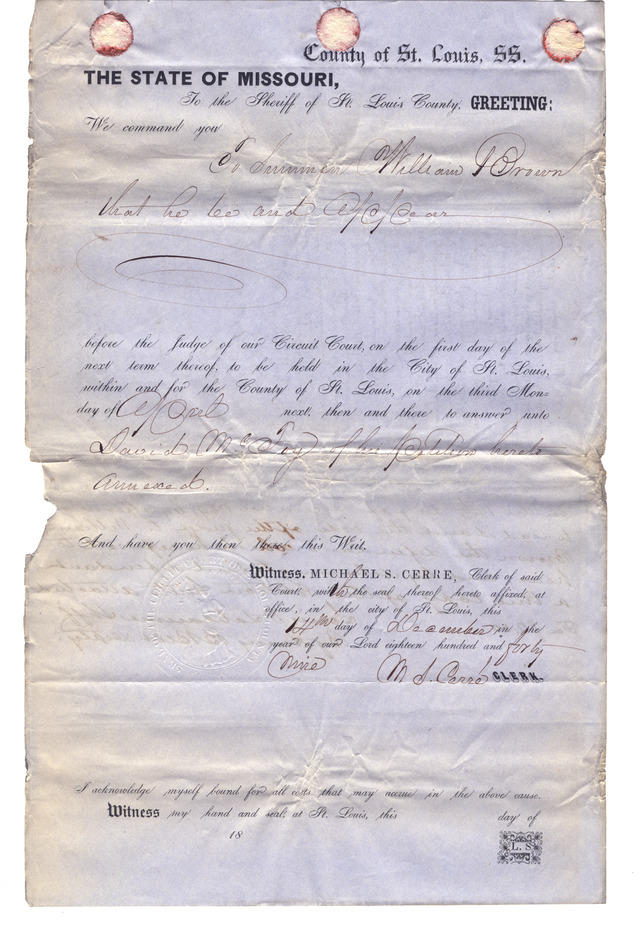 County of St. Louis, SS.
THE STATE OF MISSOURI,
To the Sheriff of St. Louis County, GREETING:
We command you
To Summon William Brown
that he be and appear
before the Judge of our Circuit Court, on the first day of the
next term thereof, to be held in the City of St. Louis,
within and for the County of St. Louis, on the third Mon=
day of April next, then and there to answer unto
David of his petition hereto
annexed.
And have you then there this Writ.
Witness, MICHAEL S. CERRE, Clerk of said
Court, with the seal thereof hereto affixed, at
office, in the city of St. Louis, this
14th day of December in the
year of our Lord eighteen hundred and forty
nine M S. Cerré CLERK.
I acknowledge myself bound for all costs that may accrue in the above cause.
Witness my hand and seal, at St. Louis, this day of
18
L. S.